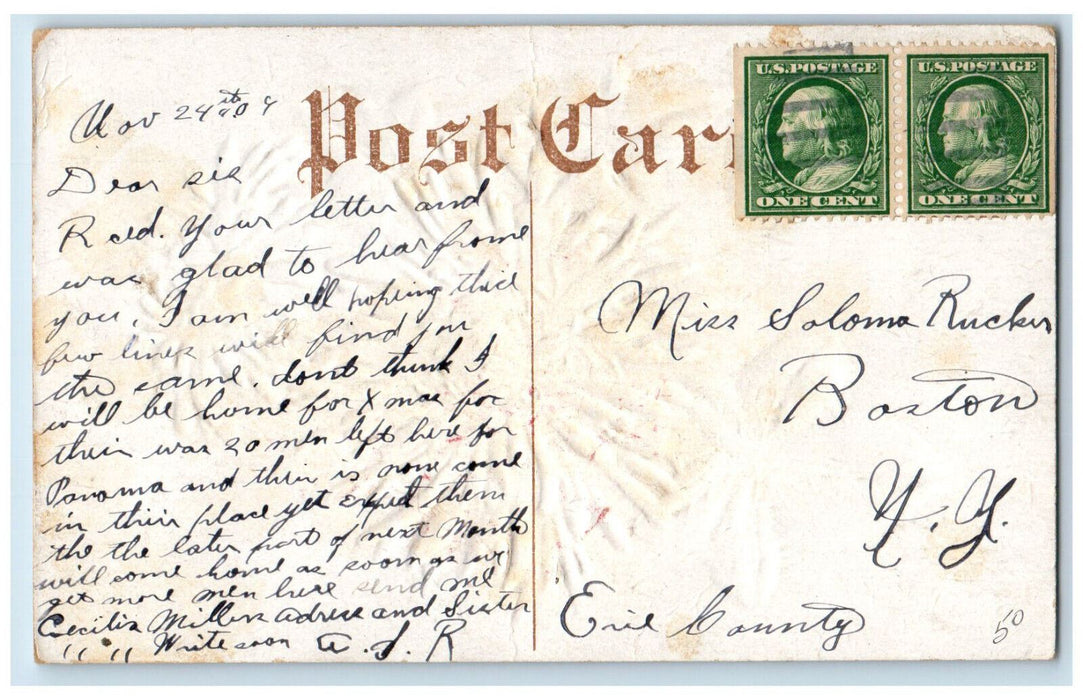 Post Car
U.S. POSTAGE
ONE CENT
U.S. POSTAGE
ONE CENT
Nov 24th 09
Dear sis
R cd. Your letter and
was glad to hear frome
you, I am well hopeing this
few lines will find you
the same. dont think I
will be home for X mas for
their was 20 men left here for
Panama and their is none come
in their place yet expect them
the the later part of next Month
will some home as soom as we
get more men here send me
Cecilia Millers adress and Sister
" " Write soon A. J. R
Miss Saloma Rucker
Boston
N. Y.
Erie County
50